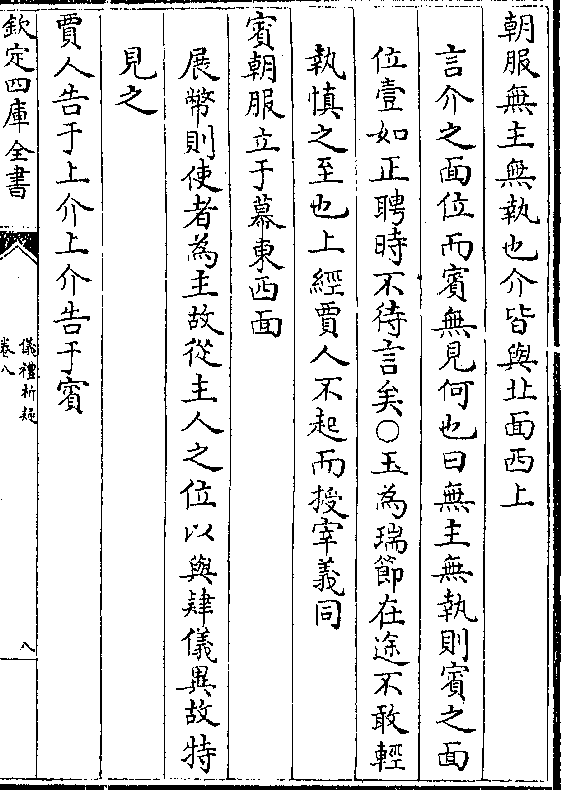 朝服無主無執也介皆與北面西上
言介之面位而賓無見何也曰無主無執則賓之面
位壹如正聘時不待言矣○玉為瑞節在途不敢輕
執慎之至也上經賈人不起而授宰義同
賓朝服立于幕東西面
展幣則使者為主故從主人之位以與肄儀異故特
見之
賈人告于上介上介告于賓
欽定四庫全書
儀禮析疑
卷八
八